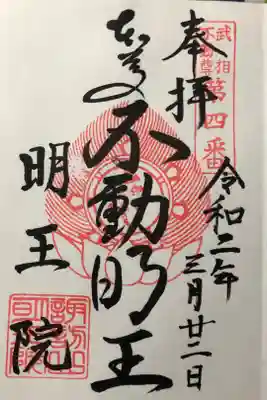 武相
不動尊
第四番
奉拝
令和二年三月廿二日
不動明王
明王院